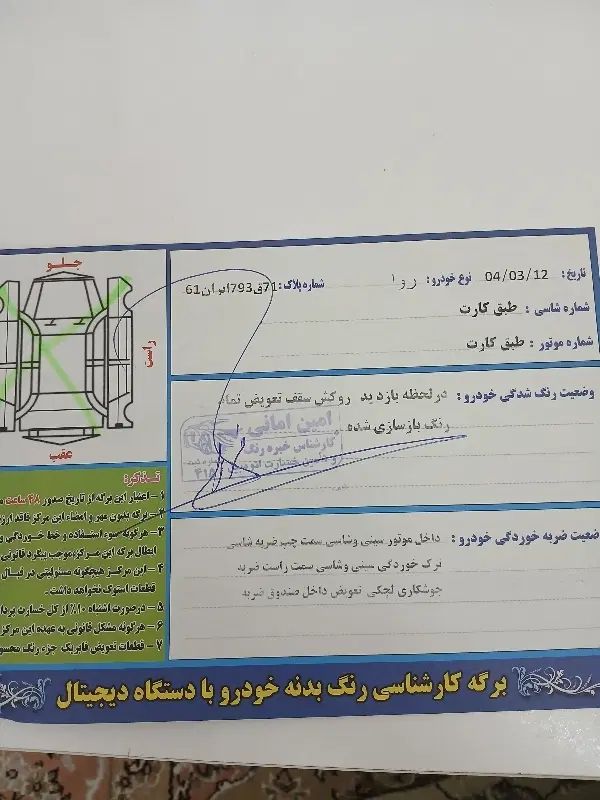 جلو
راست
عقب
تاریخ: 04/03/12 نوع خودرو: روا شماره پلاک: 71ق793ایران61
شماره شاسی : طبق کارت
شماره موتور : طبق کارت
وضعیت رنگ شدگی خودرو : در لحظه بازدید روکش سقف تعویض تمام
رنگ بازسازی شده
امین امانی
کارشناس خبره رنگ
ضعیت ضربه خوردگی خودرو : داخل موتور سینی وشاسی سمت چپ ضربه شاسی
ترک خوردگی سینی وشاسی سمت راست ضربه
جوشکاری لچکی تعویض داخل صندوق ضربه
تذکر:
۱ - اعتبار این برگه از تاریخ صدور ۴۸ ساعت
۲- برگه بدون مهر و امضاء این مرکز فاقد ارز
۳- هرگونه سوء استفاده و خط خوردگی و
ابطال برگه این مرکز، موجب پیگرد قانونی
۴ - این مرکز هیچگونه مسئولیتی در قبال
قطعات استوک نخواهد داشت.
۵ - درصورت اشتباه ۱۰٪ از کل خسارت پردا
۶ - هرگونه مشکل قانونی به عهده این مرکز
۷ - قطعات تعویض فابریک جزء رنگ محسو
برگه کارشناسی رنگ بدنه خودرو با دستگاه دیجیتال